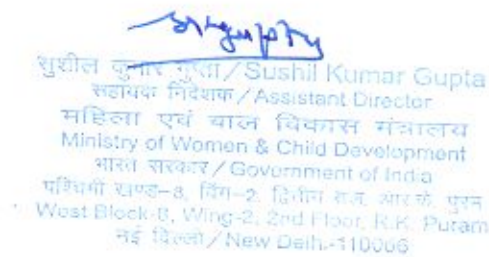 सुशील कुमार गुप्ता/Sushil Kumar Gupta
सहायक निदेशक/Assistant Director
महिला एवं बाल विकास मंत्रालय
Ministry of Women & Child Development
भारत सरकार/Government of India
पश्चिमी खण्ड-8, विंग-2, द्वितीय तल, आर.के. पुरम
West Block-8, Wing-2, 2nd Floor, R.K. Puram
नई दिल्ली/New Delh.-110066